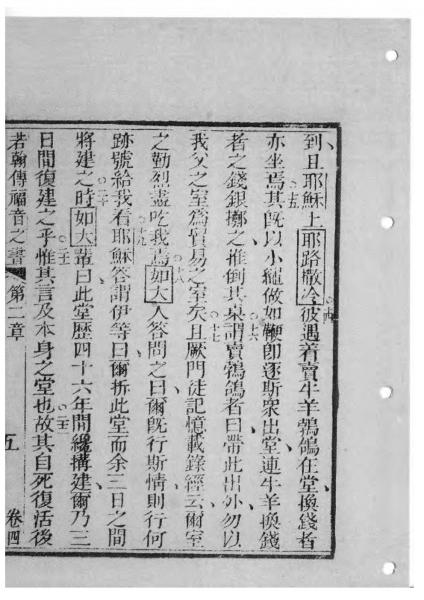 到且耶穌上耶路撒冷○十四彼遇着賣牛羊鵓鴿在堂換錢者
亦坐焉○十五其既以小䋲做如鞭卽逐斯衆出堂連牛羊換錢
者之錢銀擲之推倒其桌○十六謂賣鵓鴿者曰帶此出外勿以
我父之室爲貿易之室矣○十七且厥門徒記憶載錄經云爾室
之勤烈盡吃我焉○十八如大人答問之曰爾旣行斯情則行何
跡號給我看○十九耶穌答謂伊等曰爾拆此堂而余三日之間
將建之時○二十如大輩曰此堂歷四十六年間纔搆建爾乃三
日間復建之乎○二十一惟其言及本身之堂也○二十二故其自死復活後
若翰傳福音之書 第二章 五 卷四